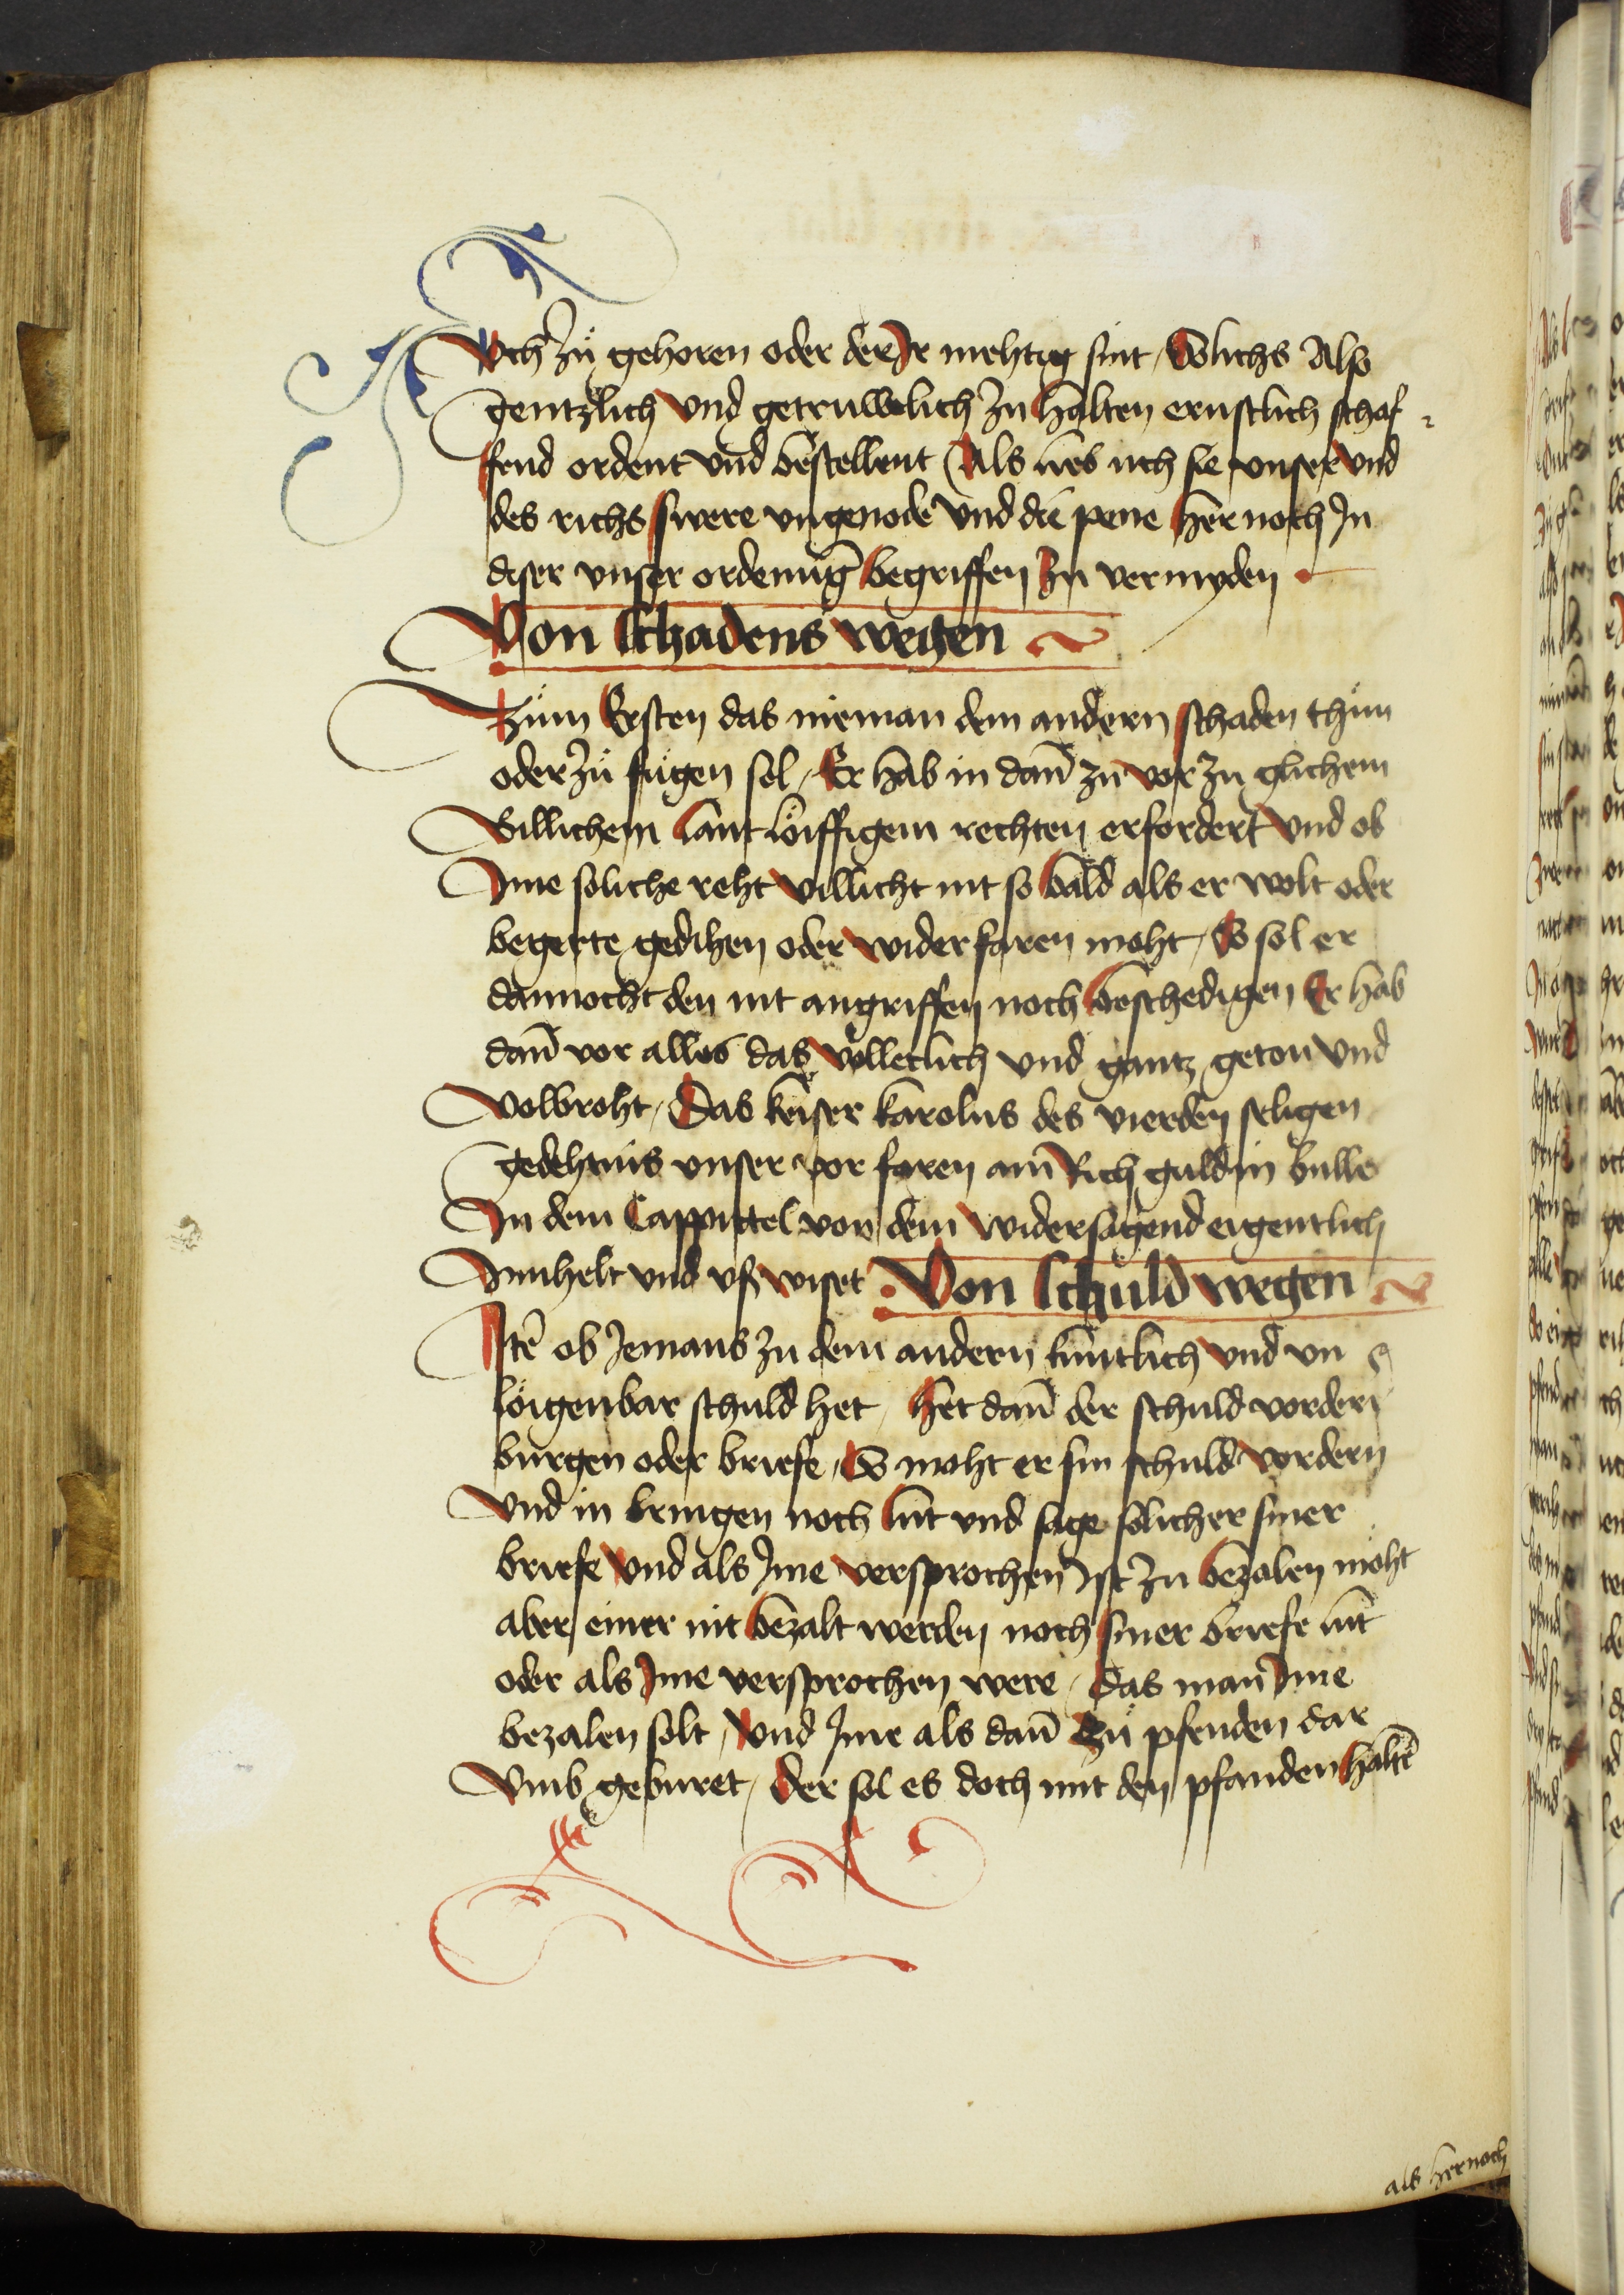 Vch zů gehoren oder der Ir mehtig sint / Solichs Also
gentzlich vnd getruwelich zu halten ernstlich schaf¬
fend ordent vnd bestellent Als lieb uch sie vnser vnd
des richs swere vngenode vnd die pene her noch In
diser vnser ordenũg begriffen zu vermyden
Von schadens wegen
Zum Ersten das nieman dem andern schaden thůn
oder zů fůgen sol / Er hab in dañ zů vor zu glichem
Billichem lant löiffigem rechten erfordert vnd ob
Ime soliche reht villicht nit so bald als er wolt oder
begerte gedihen oder wider faren moht / So sol er
dannocht den nit angriffen noch beschedigen Er hab
dañ vor alles das völleclich vnd gantz geton vnd
volbroht / Das keiser karolus des vierden seligen
gedehtnis vnser vor faren am Rich guldin bulle
In dem Cappittel von dem widersagend eigentlich
Innhelt vnd vßwiset Von schuld wegen
Itē ob Iemans zu dem andern kuntlich vnd vn
löigenbar schuld het / het dañ der schuld vordert
burgen oder briefe / So moht er sin schuld vordern
Vnd in bringen noch lut vnd sage sölicher siner
briefe vnd als Ime versprochen Ist zu bezalen möht
aber einer nit bezalt werden noch siner briefe lut
oder als Ime versprochen were / das man Ime
bezalen solt / Vnd Ime als dañ zů pfenden dar
Vmb geburet / der sol es doch mit den pfanden haltē
als hernoch